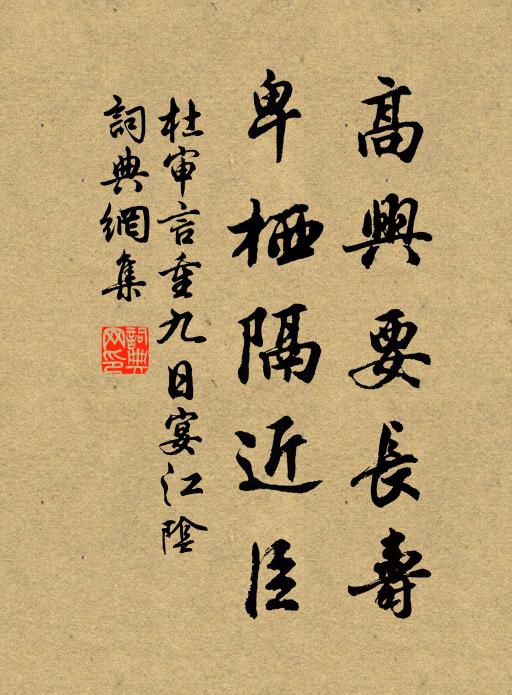 高興要長壽
卑栖隔近臣
杜审言重九日宴江陰
詞典網集
詞典网印